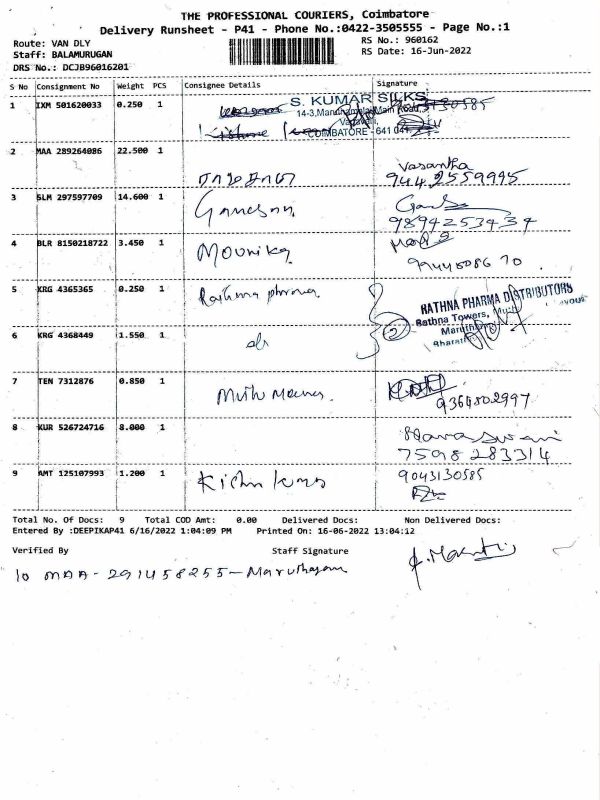 THE PROFESSIONAL COURIERS, Coimbatore
Delivery Runsheet - P41 - Phone No.:0422-3505555 - Page No.:1
Route: VAN DLY
Staff: BALAMURUGAN
DRS No.: DCJB96016201
RS No.: 960162
RS Date: 16-Jun-2022
S No Consignment No Weight PCS Consignee Details Signature
1 IXM 501620033 0.250 1
S. KUMAR SILKS
COIMBATORE - 641 041
2 MAA 289264086 22.500 1 Vasantha
944 2559995
3 SLM 297597709 14.600 1 Ganesan
9894253434
4 BLR 8150218722 3.450 1 Mounika
5 KRG 4365365 0.250 1 Rathna pharma
RATHNA PHARMA DISTRIBUTORS
Rathna Towers,
6 KRG 4368449 1.550 1 2
7 TEN 7312876 0.850 1
9364802997
8 KUR 526724716 8.000 1
7598 283314
9 AMT 125107993 1.200 1
9043130585
Total No. Of Docs: 9 Total COD Amt: 0.00 Delivered Docs: Non Delivered Docs:
Entered By :DEEPIKAP41 6/16/2022 1:04:09 PM Printed On: 16-06-2022 13:04:12
Verified By Staff Signature
10 MAA - 291458255 -